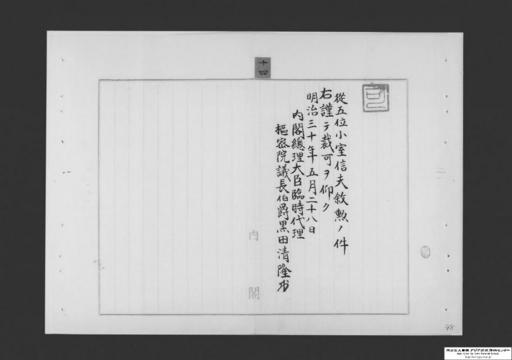 十四
従五位小室信夫敘勲ノ件
右謹テ裁可ヲ仰ク
明治三十年五月二十八日
内閣總理大臣臨時代理
樞密院議長伯爵黒田清隆
内閣